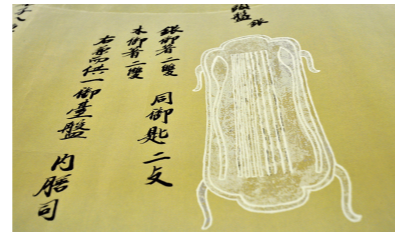 銀
銀御箸二雙 同御匙二支
木御箸二雙
右 而供一御臺盤 内膳司